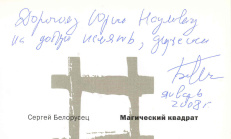 Дорогому Юрию Наумовичу
на добрую память, дружески
январь
2008 г
Сергей Белорусец Магический квадрат